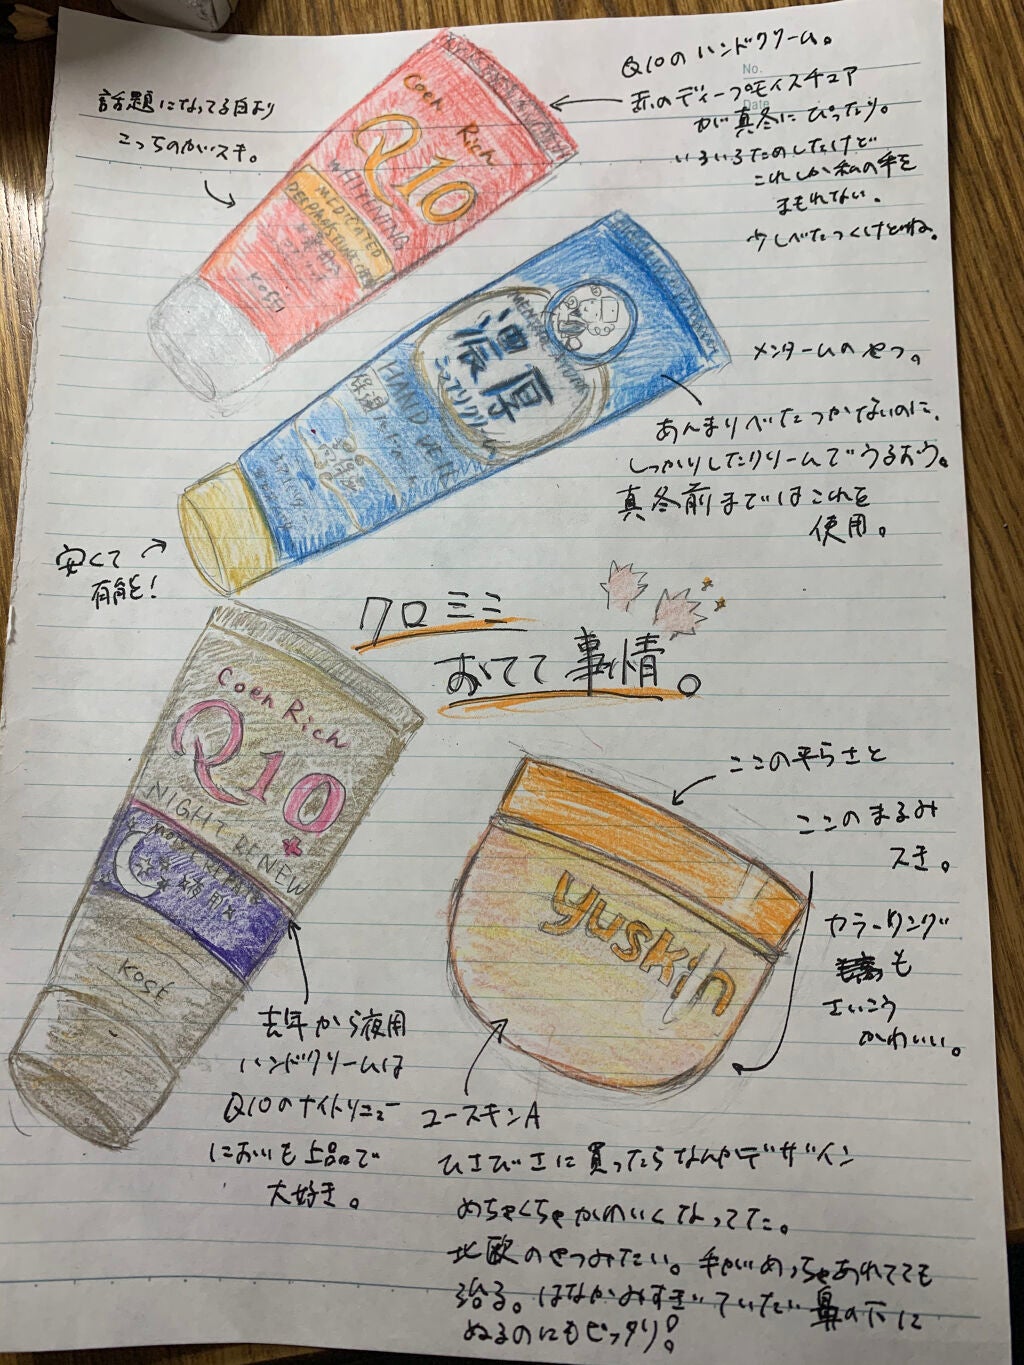 Q10のハンドクリーム。
No.
Date
赤のディープモイスチュア
が真冬にぴったり。
いろいろためしたけど
これしか私の手を
まもれない。
少しべたつくけどね。
話題になってる白より
こっちのがスキ。
Coen
Rich
Q10
WHITENING
MEDICATED
KOSE
メンタームのやつ。
あんまりべたつかないのに、
しっかりしたクリームでうるおう。
真冬前まではこれを
使用。
濃厚
こってりクリーム
HAND VEIL
安くて
有能!
クロミミ
おてて事情。
Coen Rich
Q10
NIGHT RENEW
MORE REPAIR
夜用
KOSE
去年から夜用
ハンドクリームは
Q10のナイトリニュー
においも上品で
大好き。
ここの平らさと
ここのまるみ
スキ。
カラーリング
も
さいこう
かわいい。
yuskin
ユースキンA
ひさびさに買ったらなんかデザイン
めちゃくちゃかわいくなってた。
北欧のやつみたい。手がめっちゃあれてても
治る。はなかみすぎていたい鼻の下に
ぬるのにもピッタリ!